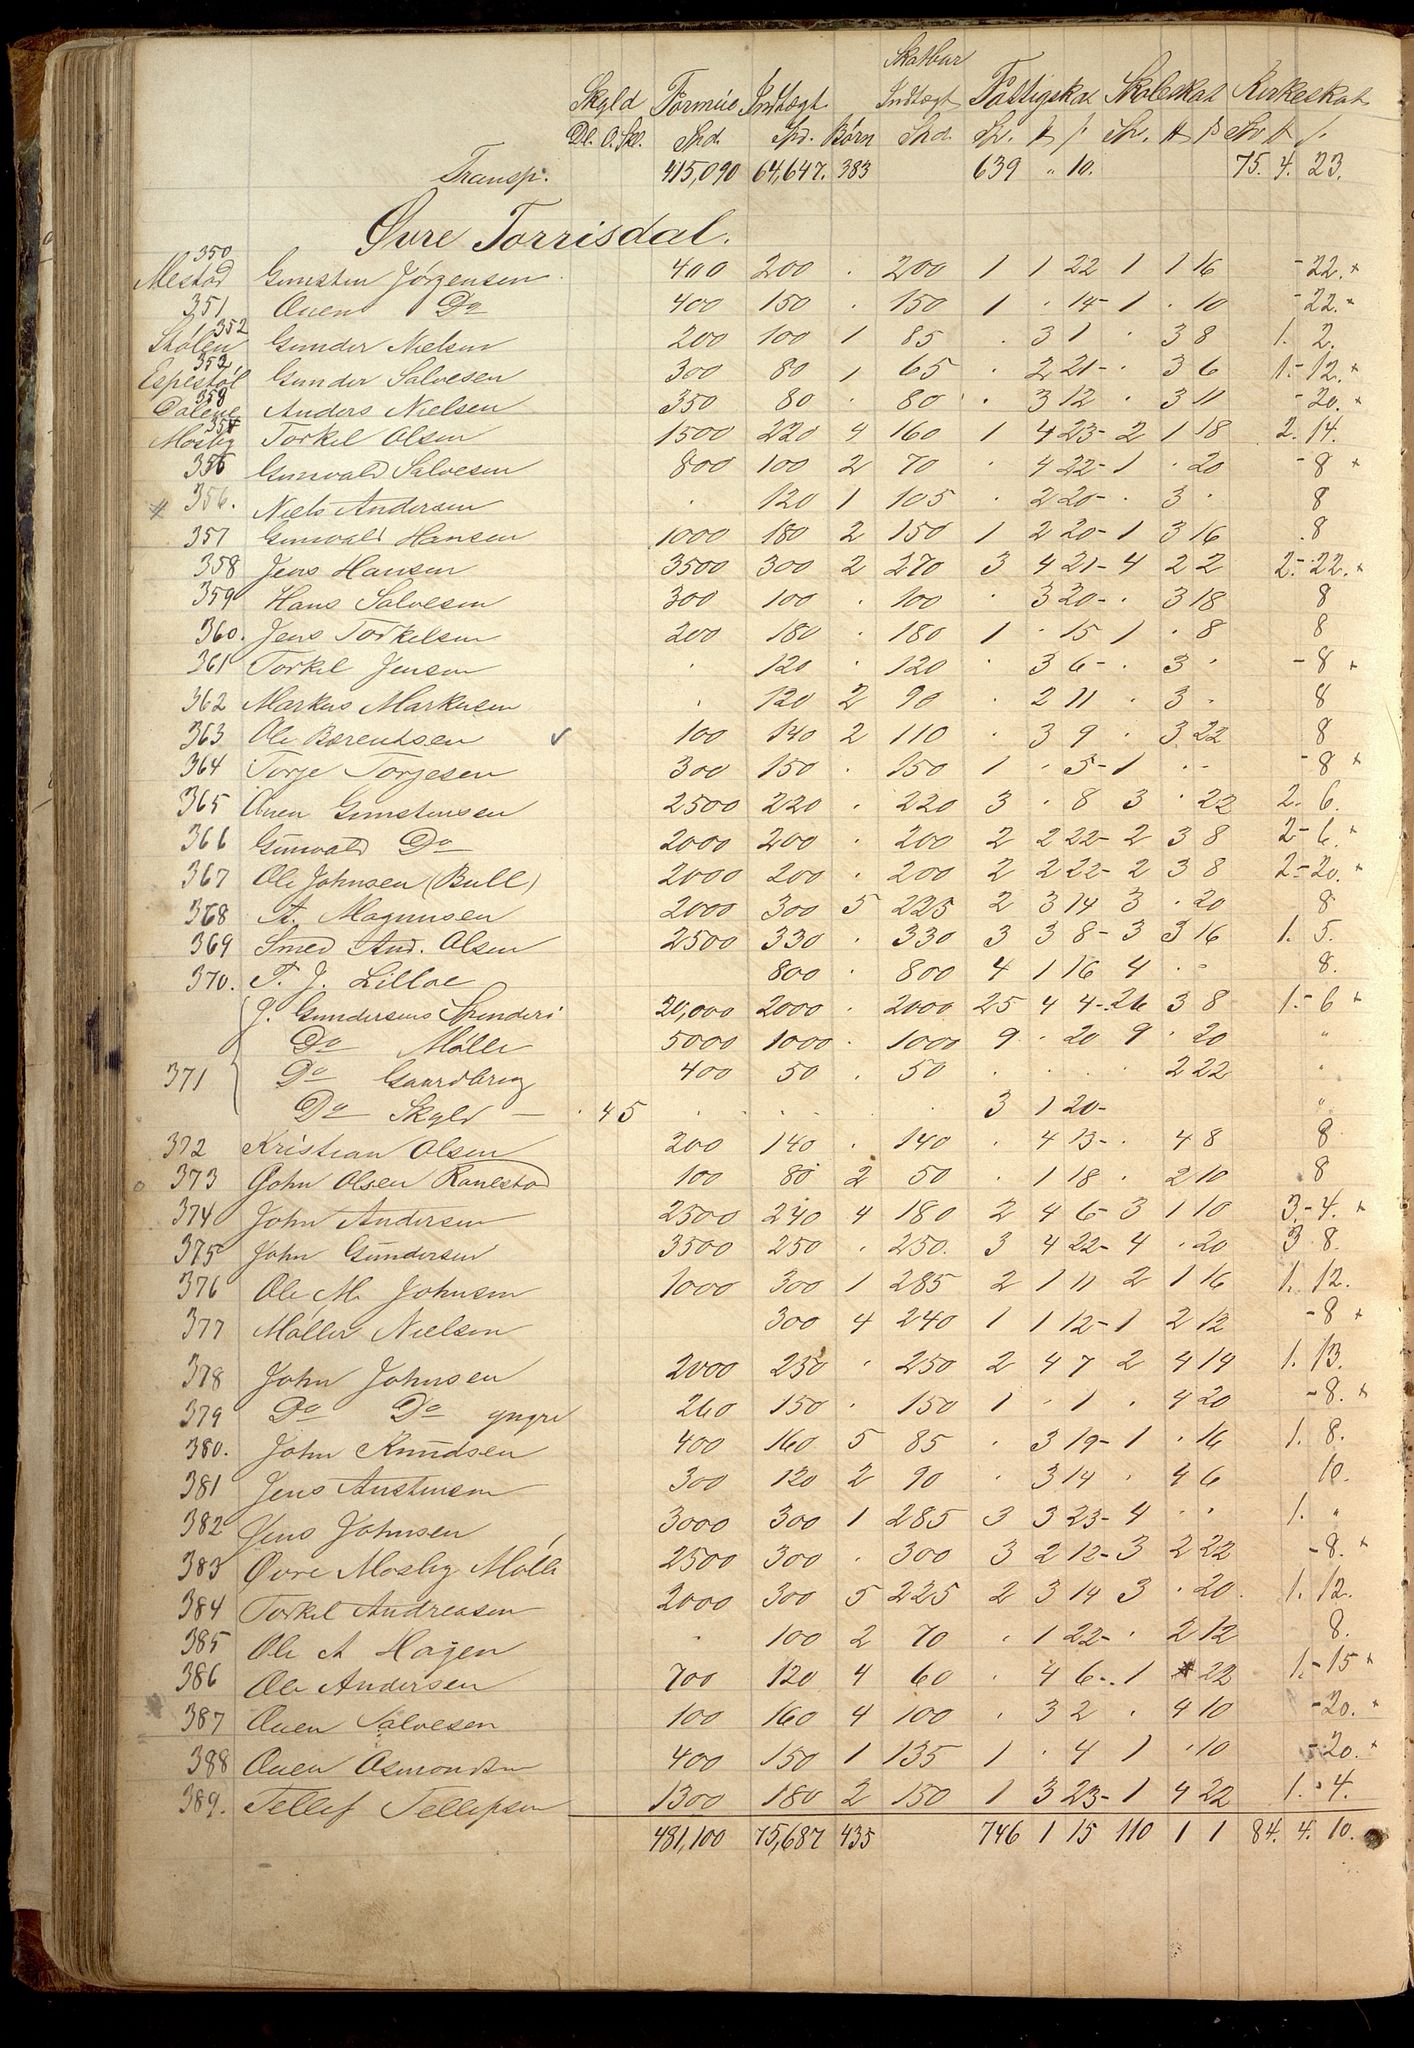 Skatbar
Skyld Formue Indtægt Indtægt Fattigskat Skoleskat Kirkeskat
Dl. O. Skl. Spd. Spd. Børn Spd. Sp. # ſ Sp. # ß Sp # ſ.
Transp. 415,090 64,647. 383 639 " 10. 75. 4. 23.
Øvre Torrisdal.
350
Mestad Gunsten Jørgensen 400 200 . 200 1 1 22 1 1 16 - 22. +
351 Auen Do 400 150 . 150 1 . 14 - 1 . 10 - 22. +
352
Stølen Gunder Nielsen 200 100 1 85 . 3 1 . 3 8 1. 2.
352
Espestøl Gunder Salvesen 300 80 1 65 . 2 21 - . 3 6 1. - 12. +
353
Dalene Anders Nielsen 350 80 . 80 . 3 12 . 3 11 - 20. +
354
Mosby Torkel Olsen 1500 220 4 160 1 4 23 - 2 1 18 2. 14.
355 Gunvald Salvesen 800 100 2 70 . 4 22 - 1 . 20 - 8 +
356. Niels Andersen . 120 1 105 . 2 20 - . 3 . 8
357 Gunvald Hansen 1000 180 2 150 1 2 20 - 1 3 16 8
358 Jens Hansen 3500 300 2 270 3 4 21 - 4 2 2 2. - 22. +
359 Hans Salvesen 300 100 . 100 . 3 20 - . 3 18 8
360. Jens Torkelsen 200 180 . 180 1 . 15 1 . 8 8
361 Torkel Jensen . 120 . 120 . 3 6 - . 3 . - 8 +
362 Markus Markusen . 120 2 90 . 2 11 . 3 . 8
363 Ole Berentsen ✓ 100 140 2 110 . 3 9 . 3 22 8
364 Torje Torjesen 300 150 . 150 1 . 5 - 1 . . - 8 +
365 Auen Gunstensen 2500 220 . 220 3 . 8 3 . 22 2. 6.
366 Gunvald Do 2000 200 . 200 2 2 22 - 2 3 8 2 - 6. +
367 Ole Johnsen (Bull) 2000 200 . 200 2 2 22 - 2 3 8 2. - 20. +
368 A. Magnusen 2000 300 5 225 2 3 14 3 . 20 8
369 Smed And. Olsen 2500 330 . 330 3 3 8 - 3 3 16 1. 5.
370. T. J. Lilloe 800 . 800 4 1 16 4 . . 8.
J. Gundersens Spinderi 20,000 2000 . 2000 25 4 4 - 26 3 8 1. - 6 +
Do Mølle 5000 1000 . 1000 9 . 20 9 . 20 "
371 Do Gaardbrug 400 50 . 50 . . . . 2 22 "
Do Skyld - . 4 5 . . . . 3 1 20 - "
372 Kristian Olsen 200 140 . 140 . 4 13 - . 4 8 8
373 John Olsen Ronestad 100 80 2 50 . 1 18 . 2 10 8
374 John Andersen 2500 240 4 180 2 4 6 - 3 1 10 3. - 4. +
375 John Gundersen 3500 250 . 250. 3 4 22 - 4 . 20 3 8.
376 Ole M. Johnsen 1000 300 1 285 2 1 11 2 1 16 1. 12.
377 Møller Nielsen 300 4 240 1 1 12 - 1 2 12 - 8 +
378 John Johnsen 2000 250 . 250 2 4 7 2 4 14 1. 13.
379 Do Do yngre 260 150 . 150 1 . 1 . 4 20 - 8. +
380. John Knudsen 400 160 5 85 . 3 19 - 1 . 16 1. 8.
381 Jens Austensen 300 120 2 90 . 3 14 . 4 6 10.
382 Jens Johnsen 3000 300 1 285 3 3 23 - 4 . . 1. "
383 Øvre Mosby Mølle 2500 300 . 300 3 2 12 - 3 2 22 - 8. +
384 Torkel Andreasen 2000 300 5 225 2 3 14 3 . 20. 1. 12.
385 Ole A Hagen . 100 2 70 . 1 22 - . 2 12 8.
386 Ole Andersen 700 120 4 60 . 4 6 - . 1 22 1. - 15 +
387 Auen Salvesen 100 160 4 100 . 3 2 . 4 10 - 20. +
388 Auen Osmondsen 400 150 1 135 1 . 4 1 . 10 - 20. +
389. Tellef Tellefsen 1300 180 2 150 1 3 23 - 1 4 22 1. . 4.
481,100 75,687 435 746 1 15 110 1 1 84. 4. 10.